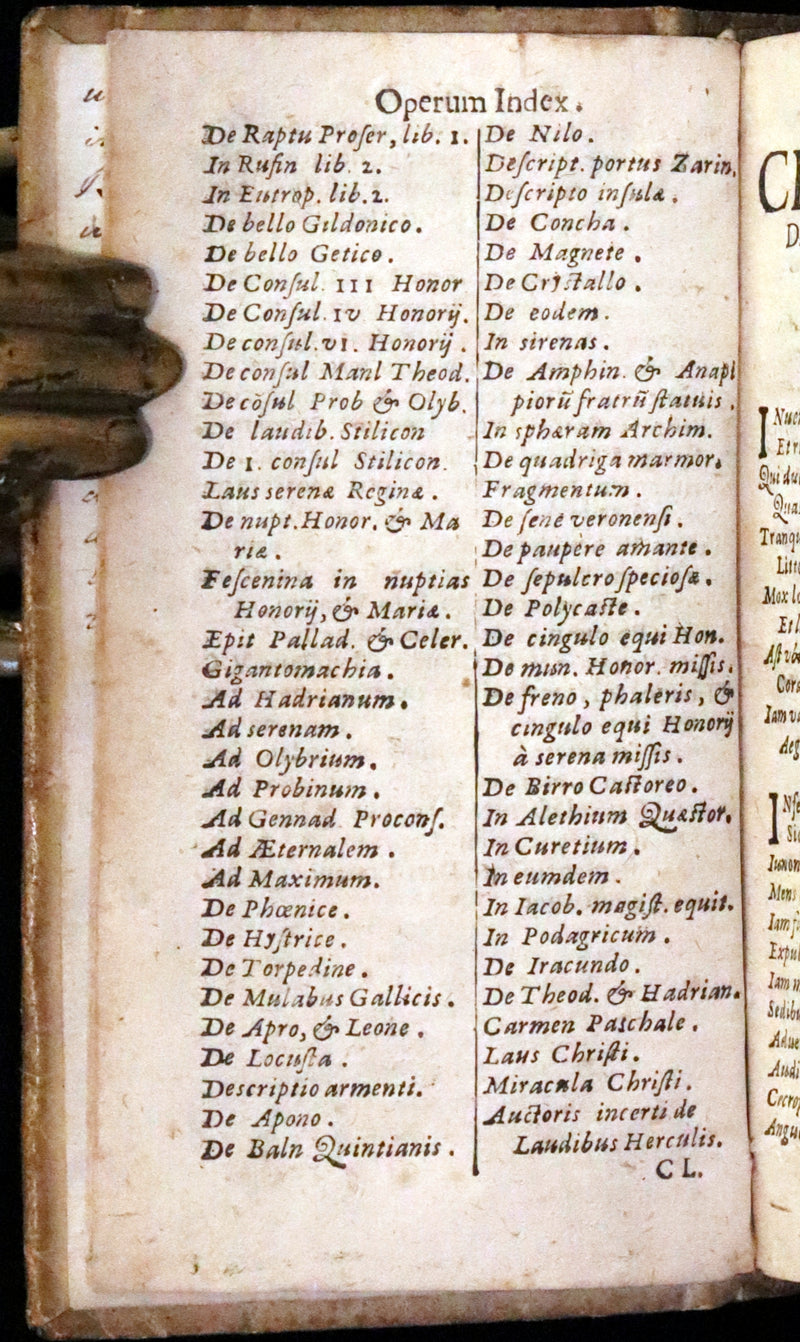 Operum Index.
De Raptu Proſer, lib. 1.
In Rufin lib. 2.
In Eutrop. lib. 2.
De bello Gildonico.
De bello Getico.
De Conſul. III Honor
De Conſul. IV Honorij.
De conſul. VI. Honorij.
De conſul Manl Theod.
De cõſul Prob & Olyb.
De laudib. Stilicon
De 1. conſul Stilicon.
Laus serenæ Reginæ.
De nupt. Honor. & Ma
riæ.
Feſcenina in nuptias
Honorij, & Mariæ.
Epit Pallad. & Celer.
Gigantomachia.
Ad Hadrianum.
Ad serenam.
Ad Olybrium.
Ad Probinum.
Ad Gennad Proconſ.
Ad Æternalem.
Ad Maximum.
De Phœnice.
De Hyſtrice.
De Torpedine.
De Mulabus Gallicis.
De Apro, & Leone.
De Locuſta.
Descriptio armenti.
De Apono.
De Baln Quintianis.
De Nilo.
Deſcript. portus Zarin.
Deſcripto inſulæ.
De Concha.
De Magnete.
De Cryſtallo.
De eodem.
In sirenas.
De Amphin. & Anapi
piorũ fratrũ ſtatuis.
In sphæram Archim.
De quadriga marmor.
Fragmentum.
De ſene veronenſi.
De paupere amante.
De ſepulcro ſpecioſæ.
De Polycaſte.
De cingulo equi Hon.
De mun. Honor. miſſis.
De freno, phaleris, &
cingulo equi Honorij
à serena miſſis.
De Birro Caſtoreo.
In Alethium Quæſtor.
In Curetium.
In eumdem.
In Iacob. magiſt. equit.
In Podagricum.
De Iracundo.
De Theod. & Hadrian.
Carmen Paschale.
Laus Chriſti.
Miracula Chriſti.
Auctoris incerti de
Laudibus Herculis.
CL.